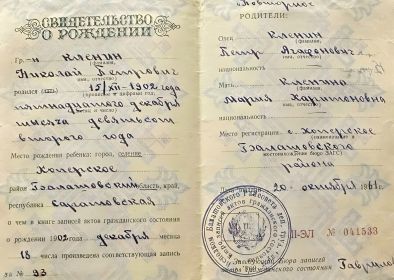 СВИДЕТЕЛЬСТВО
О РОЖДЕНИИ
Гр.-н Кленин
(фамилия,
Николай Петрович
имя, отчество)
родился 15/XII-1902 года
(прописью и цифрами год,
пятнадцатого декабря
месяц и число)
тысяча девятьсот
второго года
Место рождения ребенка: город, селение
Хоперское
район Балашовский область, край,
республика Саратовская
о чем в книге записей актов гражданского состояния
о рождении 1902 года декабря месяца
18 числа произведена соответствующая запись
за № 93
Повторное
РОДИТЕЛИ:
Отец Кленин
(фамилия,
Петр Агафонович
имя, отчество)
национальность
Мать Кленина
(фамилия,
Мария Харитоновна
имя, отчество)
национальность
Место регистрации с. Хоперское
(наименование и
Балашовского
местонахождение бюро ЗАГС)
района
20 октября 1961г.
II-ЭЛ № 041533
Заведующий Бюро записей
актов гражданского состояния